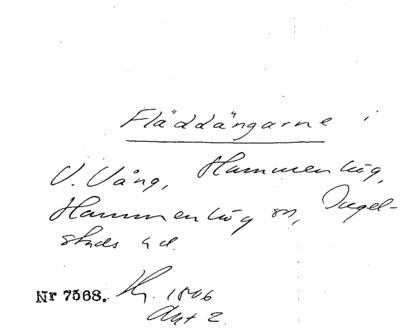 Fläddängarne i
V. Vång, Hammenhög,
Hammenhög sn, Ingel-
stads hd.
Nr 7568. Kr. 1806
Akt 2.